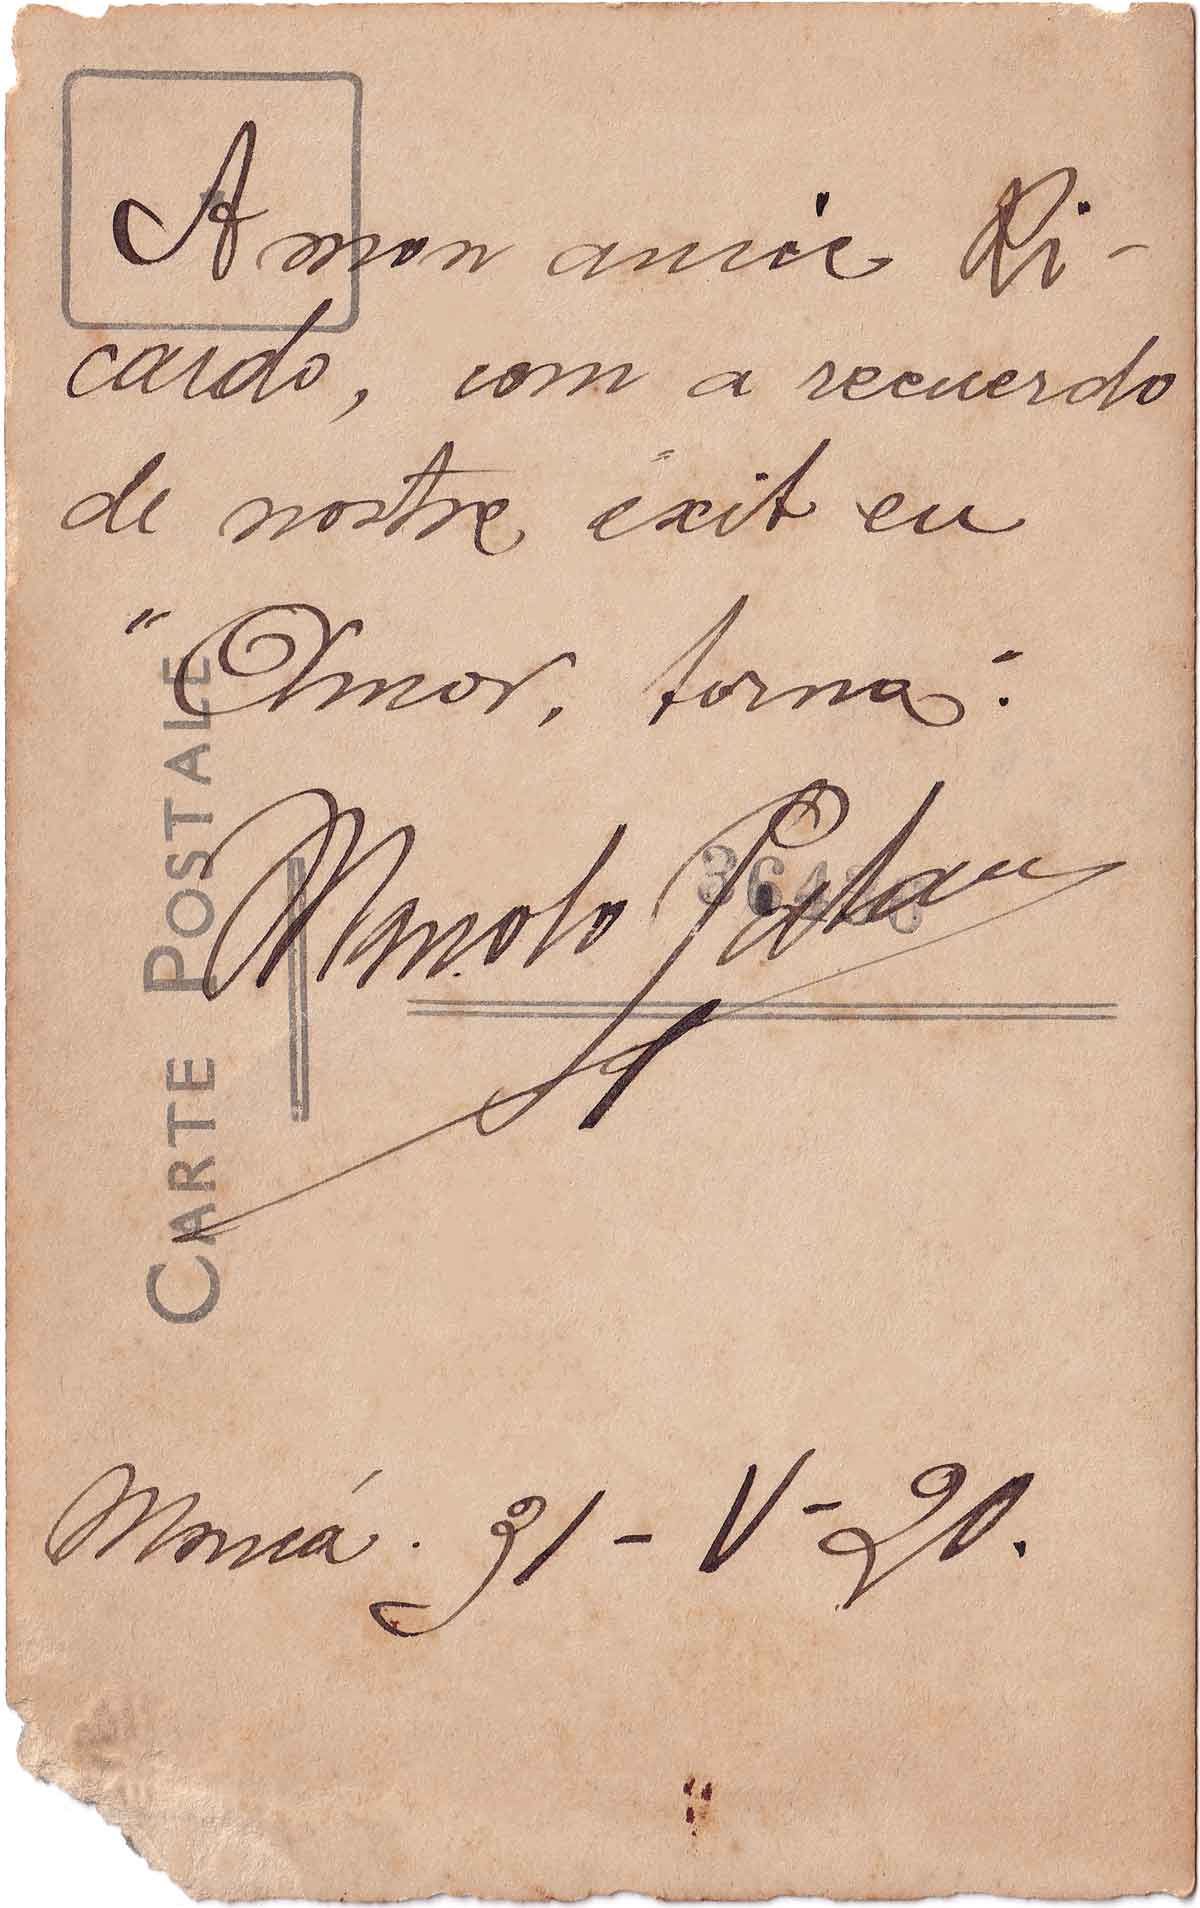 A mon amic Ri-
cardo, com a recuerdo
de nostre éxit en
"Amor, torna".
Manolo
31-V-20.
CARTE POSTALE